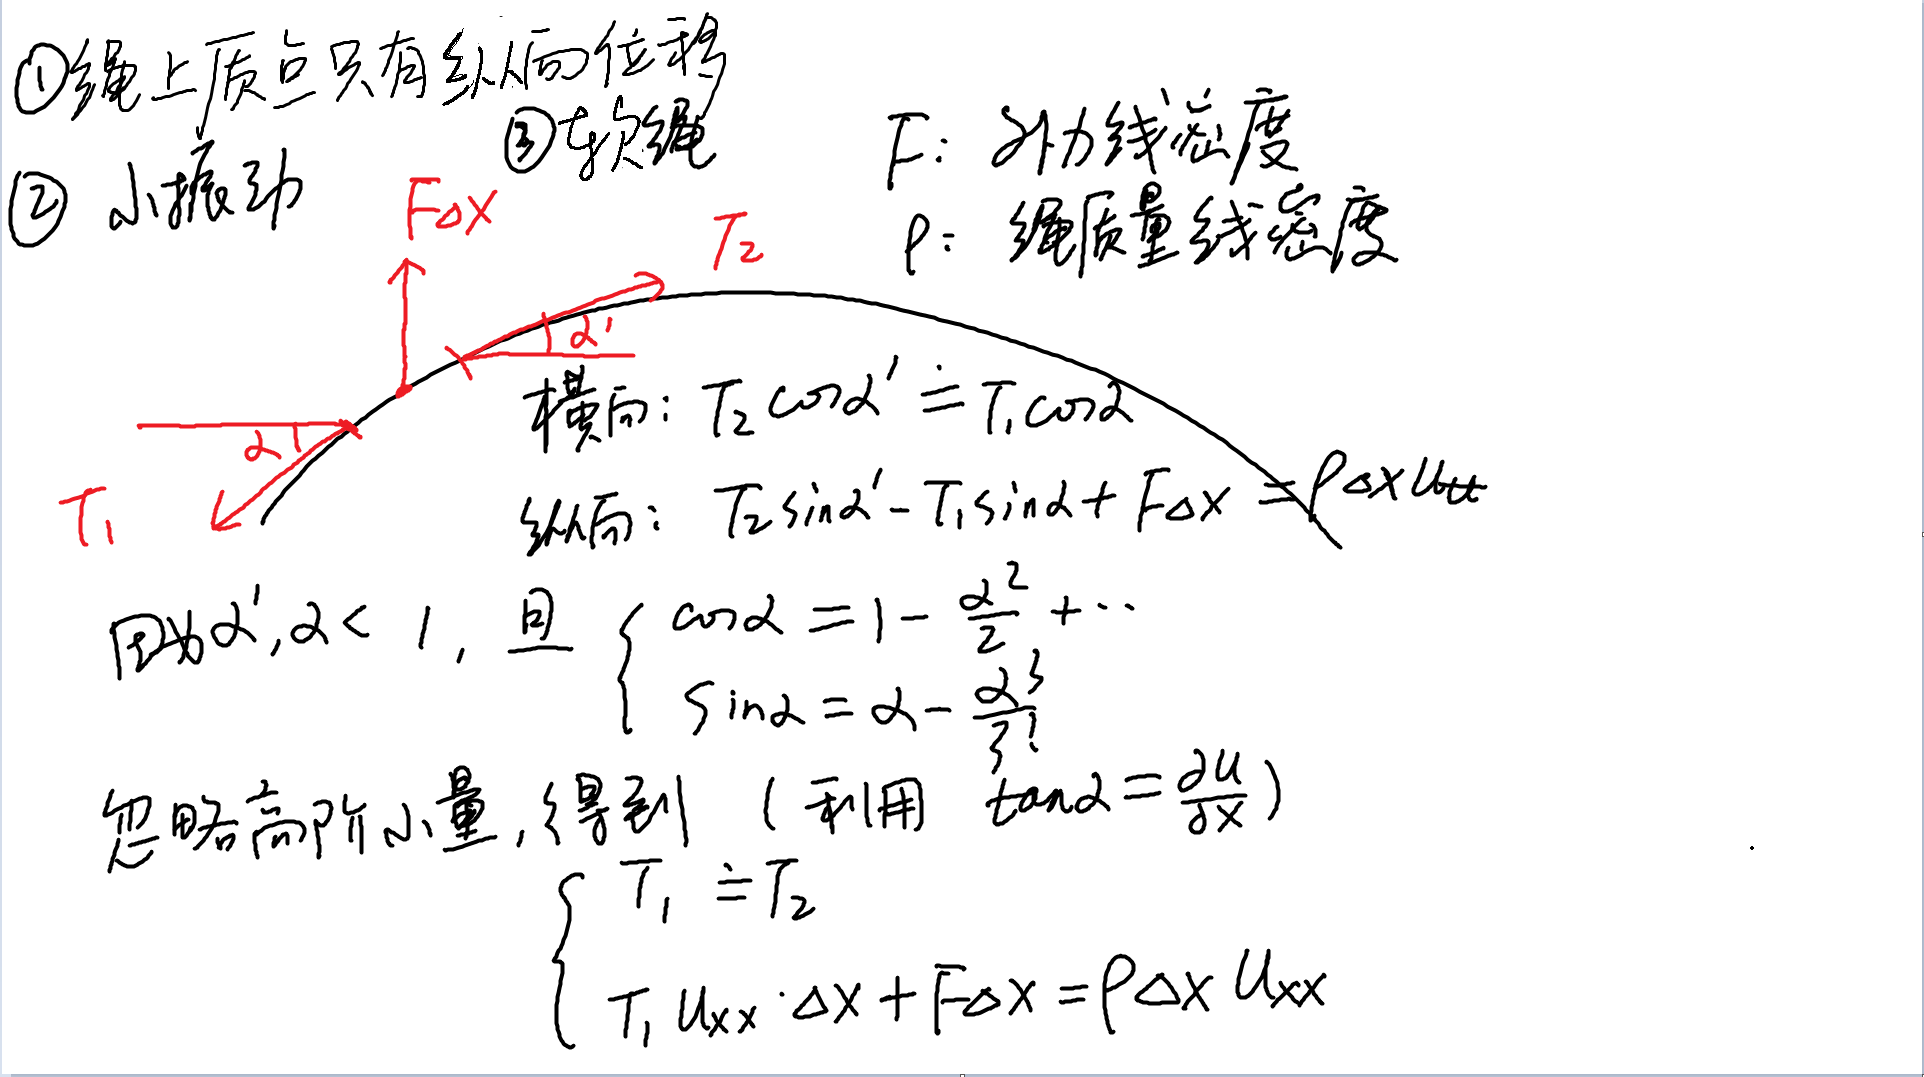 ①绳上质点只有纵向位移
② 小振动
③软绳
F: 外力线密度
ρ: 绳质量线密度
FΔx
T₂
α'
α
T₁
横向: T₂cosα' ≐ T₁cosα
纵向: T₂sinα' - T₁sinα + FΔx = ρΔx u_tt
因为α',α < 1, 且 { cosα = 1 - α²/2 + ⋯
sinα = α - α³/3!
忽略高阶小量,得到 (利用 tanα = ∂u/∂x)
{ T₁ ≐ T₂
T₁u_xx·Δx + FΔx = ρΔx u_xx